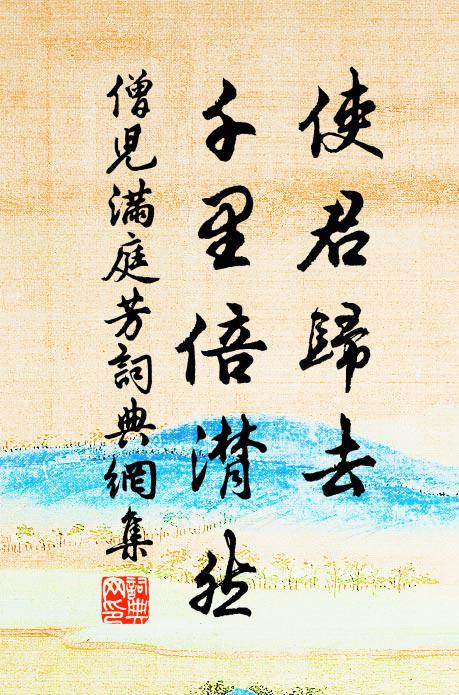 使君歸去
千里倍潸然
僧児滿庭芳詞典網集
詞典